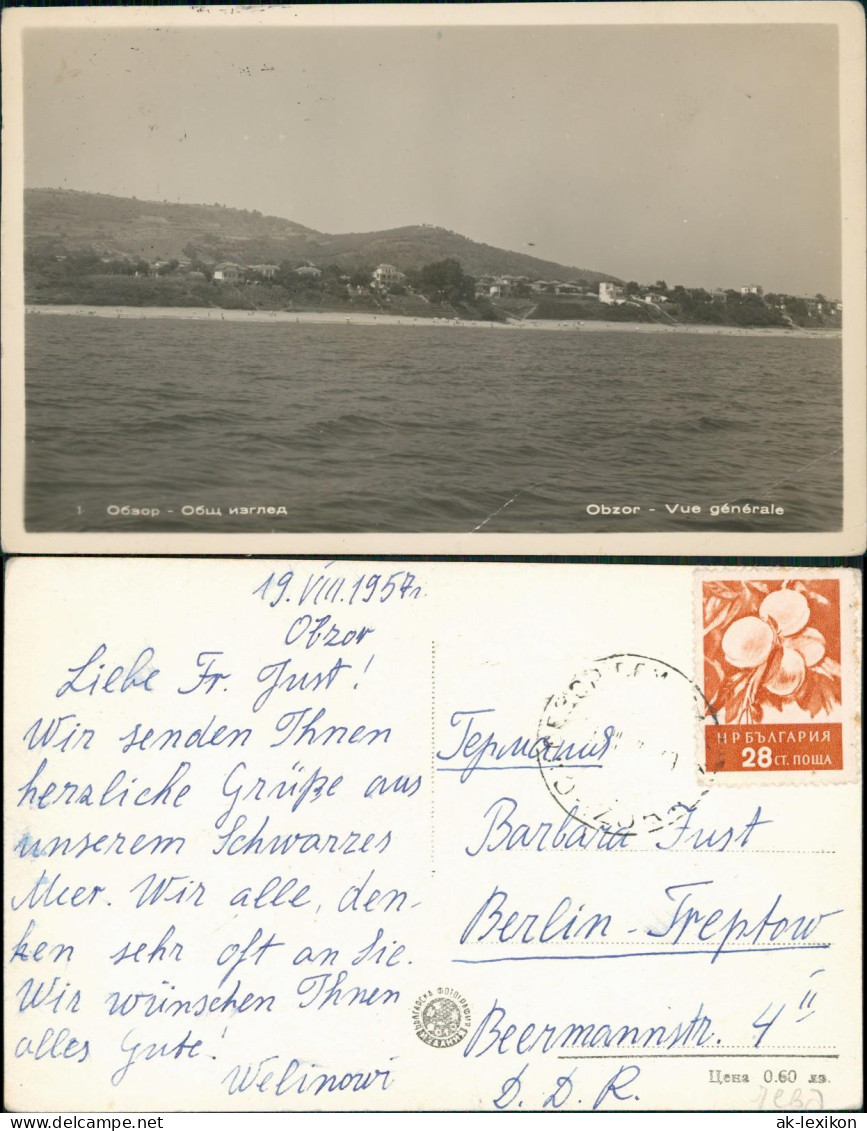 1 Обзор - Общ изглед
Obzor - Vue générale
19. VIII. 1957 г.
Obzor
Liebe Fr. Just!
Wir senden Ihnen
herzliche Grüße aus
unserem Schwarzes
Meer. Wir alle, den-
ken sehr oft an Sie.
Wir wünschen Ihnen
alles Gute!
Welinowi
НРБЪЛГАРИЯ
28 СТ. ПОЩА
Германия
Barbara Just
Berlin-Treptow
Beermannstr. 4 II
D. D. R.
БЪЛГАРСКА ФОТОГРАФИЯ
Цена 0.60 лв.
ak-lexikon
www.delcampe.net
ak-lexikon